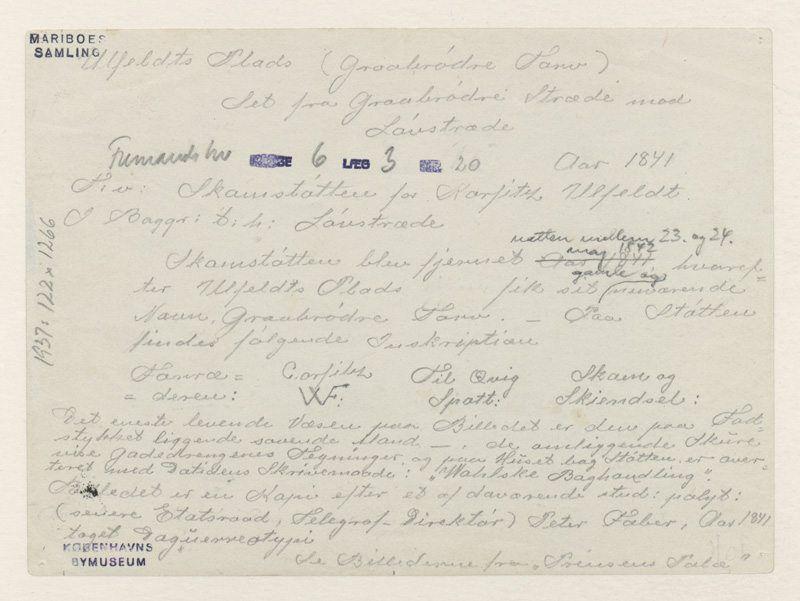 MARIBOES
SAMLING
Ulfeldts Plads (Graabrødre Torv)
Set fra Graabrødre Stræde mod
Løvstræde
6 LÆG 3 20 Aar 1841
T. v: Skamstøtten for Korfitz Ulfeldt.
I Baggr: t: h: Løvstræde
natten mellem 23. og 24.
maj 1842
Skamstøtten blev fjernet Aar 1841 hvoref=
gamle og
ter Ulfeldts Plads fik sit nuværende
Navn, Graabrødre Torv. — Paa Støtten
findes følgende Inskription
Foræ= Corfitz Til Evig Skam og
=deren: WF: Spott: Skiendsel:
Det eneste levende Væsen paa Billedet er den paa Fod-
stykket liggende sovende Mand —. de omliggende Skure
vise Gadedrengenes Tegninger, og paa Huset bag Støtten er aver-
teret med Datidens Skrivemaade: "Wahlske Boghandling".
Billedet er en Kopi efter et af daværende stud: polyt:
(senere Etatsraad, Telegraf-Direktør) Peter Faber, Aar 1841
taget Daguerreotypi
KØBENHAVNS
BYMUSEUM
Se Billederne fra "Prinsens Palæ"
1937: 122 x 1266